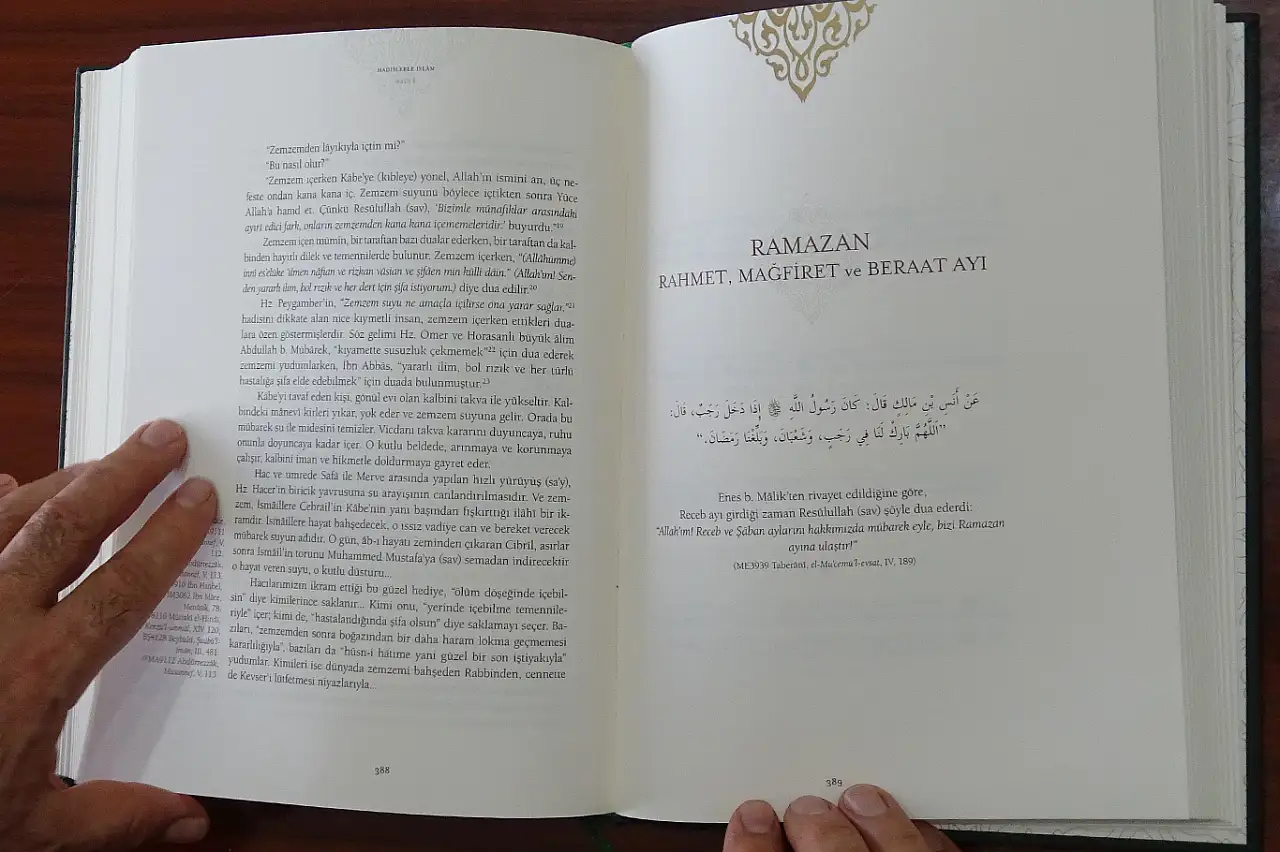 HADİSLERLE İSLÂM
“Zemzemden lâyıkıyla içtin mi?”
“Bu nasıl olur?”
“Zemzem içerken Kâbe'ye (kıbleye) yönel, Allah'ın ismini an, üç ne-
feste ondan kana kana iç. Zemzem suyunu böylece içtikten sonra Yüce
Allah'a hamd et. Çünkü Resûlullah (sav), ‘Bizimle münafıklar arasındaki
ayırt edici fark, onların zemzemden kana kana içememeleridir.’ buyurdu.”19
Zemzem içen mümin, bir taraftan bazı dualar ederken, bir taraftan da kal-
binden hayırlı dilek ve temennilerde bulunur. Zemzem içerken, “(Allâhumme)
innî es'elüke ‘ilmen nâfian ve rizkan vâsian ve şifâen min külli dâin.” (Allah'ım! Sen-
den yararlı ilim, bol rızık ve her dert için şifa istiyorum.) diye dua edilir.20
Hz. Peygamber'in, “Zemzem suyu ne amaçla içilirse ona yarar sağlar,”21
hadisini dikkate alan nice kıymetli insan, zemzem içerken ettikleri dua-
lara özen göstermişlerdir. Söz gelimi Hz. Ömer ve Horasanlı büyük âlim
Abdullah b. Mübârek, “kıyamette susuzluk çekmemek”22 için dua ederek
zemzemi yudumlarken, İbn Abbâs, “yararlı ilim, bol rızık ve her türlü
hastalığa şifa elde edebilmek” için duada bulunmuştur.23
Kâbe'yi tavaf eden kişi, gönül evi olan kalbini takva ile yükseltir. Kal-
bindeki mânevî kirleri yıkar, yok eder ve zemzem suyuna gelir. Orada bu
mübarek su ile midesini temizler. Vicdanı takva kararını duyuncaya, ruhu
onunla doyuncaya kadar içer. O kutlu beldede, arınmaya ve korunmaya
çalışır, kalbini iman ve hikmetle doldurmaya gayret eder.
Hac ve umrede Safâ ile Merve arasında yapılan hızlı yürüyüş (sa'y),
Hz. Hacer'in biricik yavrusuna su arayışının canlandırılmasıdır. Ve zem-
zem, İsmâillere Cebrail'in Kâbe'nin yanı başından fışkırttığı ilâhî bir ik-
ramdır. İsmâillere hayat bahşedecek, o ıssız vadiye can ve bereket verecek
mübarek suyun adıdır. O gün, âb-ı hayatı zeminden çıkaran Cibrîl, asırlar
sonra İsmâil'in torunu Muhammed Mustafa'ya (sav) semadan indirecektir
o hayat veren suyu, o kutlu düsturu...
Hacılarımızın ikram ettiği bu güzel hediye, “ölüm döşeğinde içebil-
sin” diye kimilerince saklanır... Kimi onu, “yerinde içebilme temennile-
riyle” içer; kimi de, “hastalandığında şifa olsun” diye saklamayı seçer. Ba-
zıları, “zemzemden sonra boğazından bir daha haram lokma geçmemesi
kararlılığıyla”, bazıları da “hüsn-i hâtime yani güzel bir son iştiyakıyla”
yudumlar. Kimileri ise dünyada zemzemi bahşeden Rabbinden, cennette
de Kevser'i lütfetmesi niyazlarıyla...
112.
V, 113.
İbn Hanbel,
İbn Mâce,
Menâsik, 78.
Müttakî el-Hindî,
Kenzü'l-ummâl, XIV, 120;
Beyhakî, Şuabü'l-
îmân, III, 481.
MA9112 Abdürrezzâk,
Musannef, V, 113.
388
RAMAZAN
RAHMET, MAĞFİRET ve BERAAT AYI
عَنْ أَنَسِ بْنِ مَالِكٍ قَالَ: كَانَ رَسُولُ اللَّهِ ﷺ إِذَا دَخَلَ رَجَبٌ، قَالَ:
”اَللّٰهُمَّ بَارِكْ لَنَا فِي رَجَبٍ، وَشَعْبَانَ، وَبَلِّغْنَا رَمَضَانَ.“
Enes b. Mâlik'ten rivayet edildiğine göre,
Receb ayı girdiği zaman Resûlullah (sav) şöyle dua ederdi:
“Allah'ım! Receb ve Şâban aylarını hakkımızda mübarek eyle, bizi Ramazan
ayına ulaştır!”
(ME3939 Taberânî, el-Mu'cemü'l-evsat, IV, 189)
389